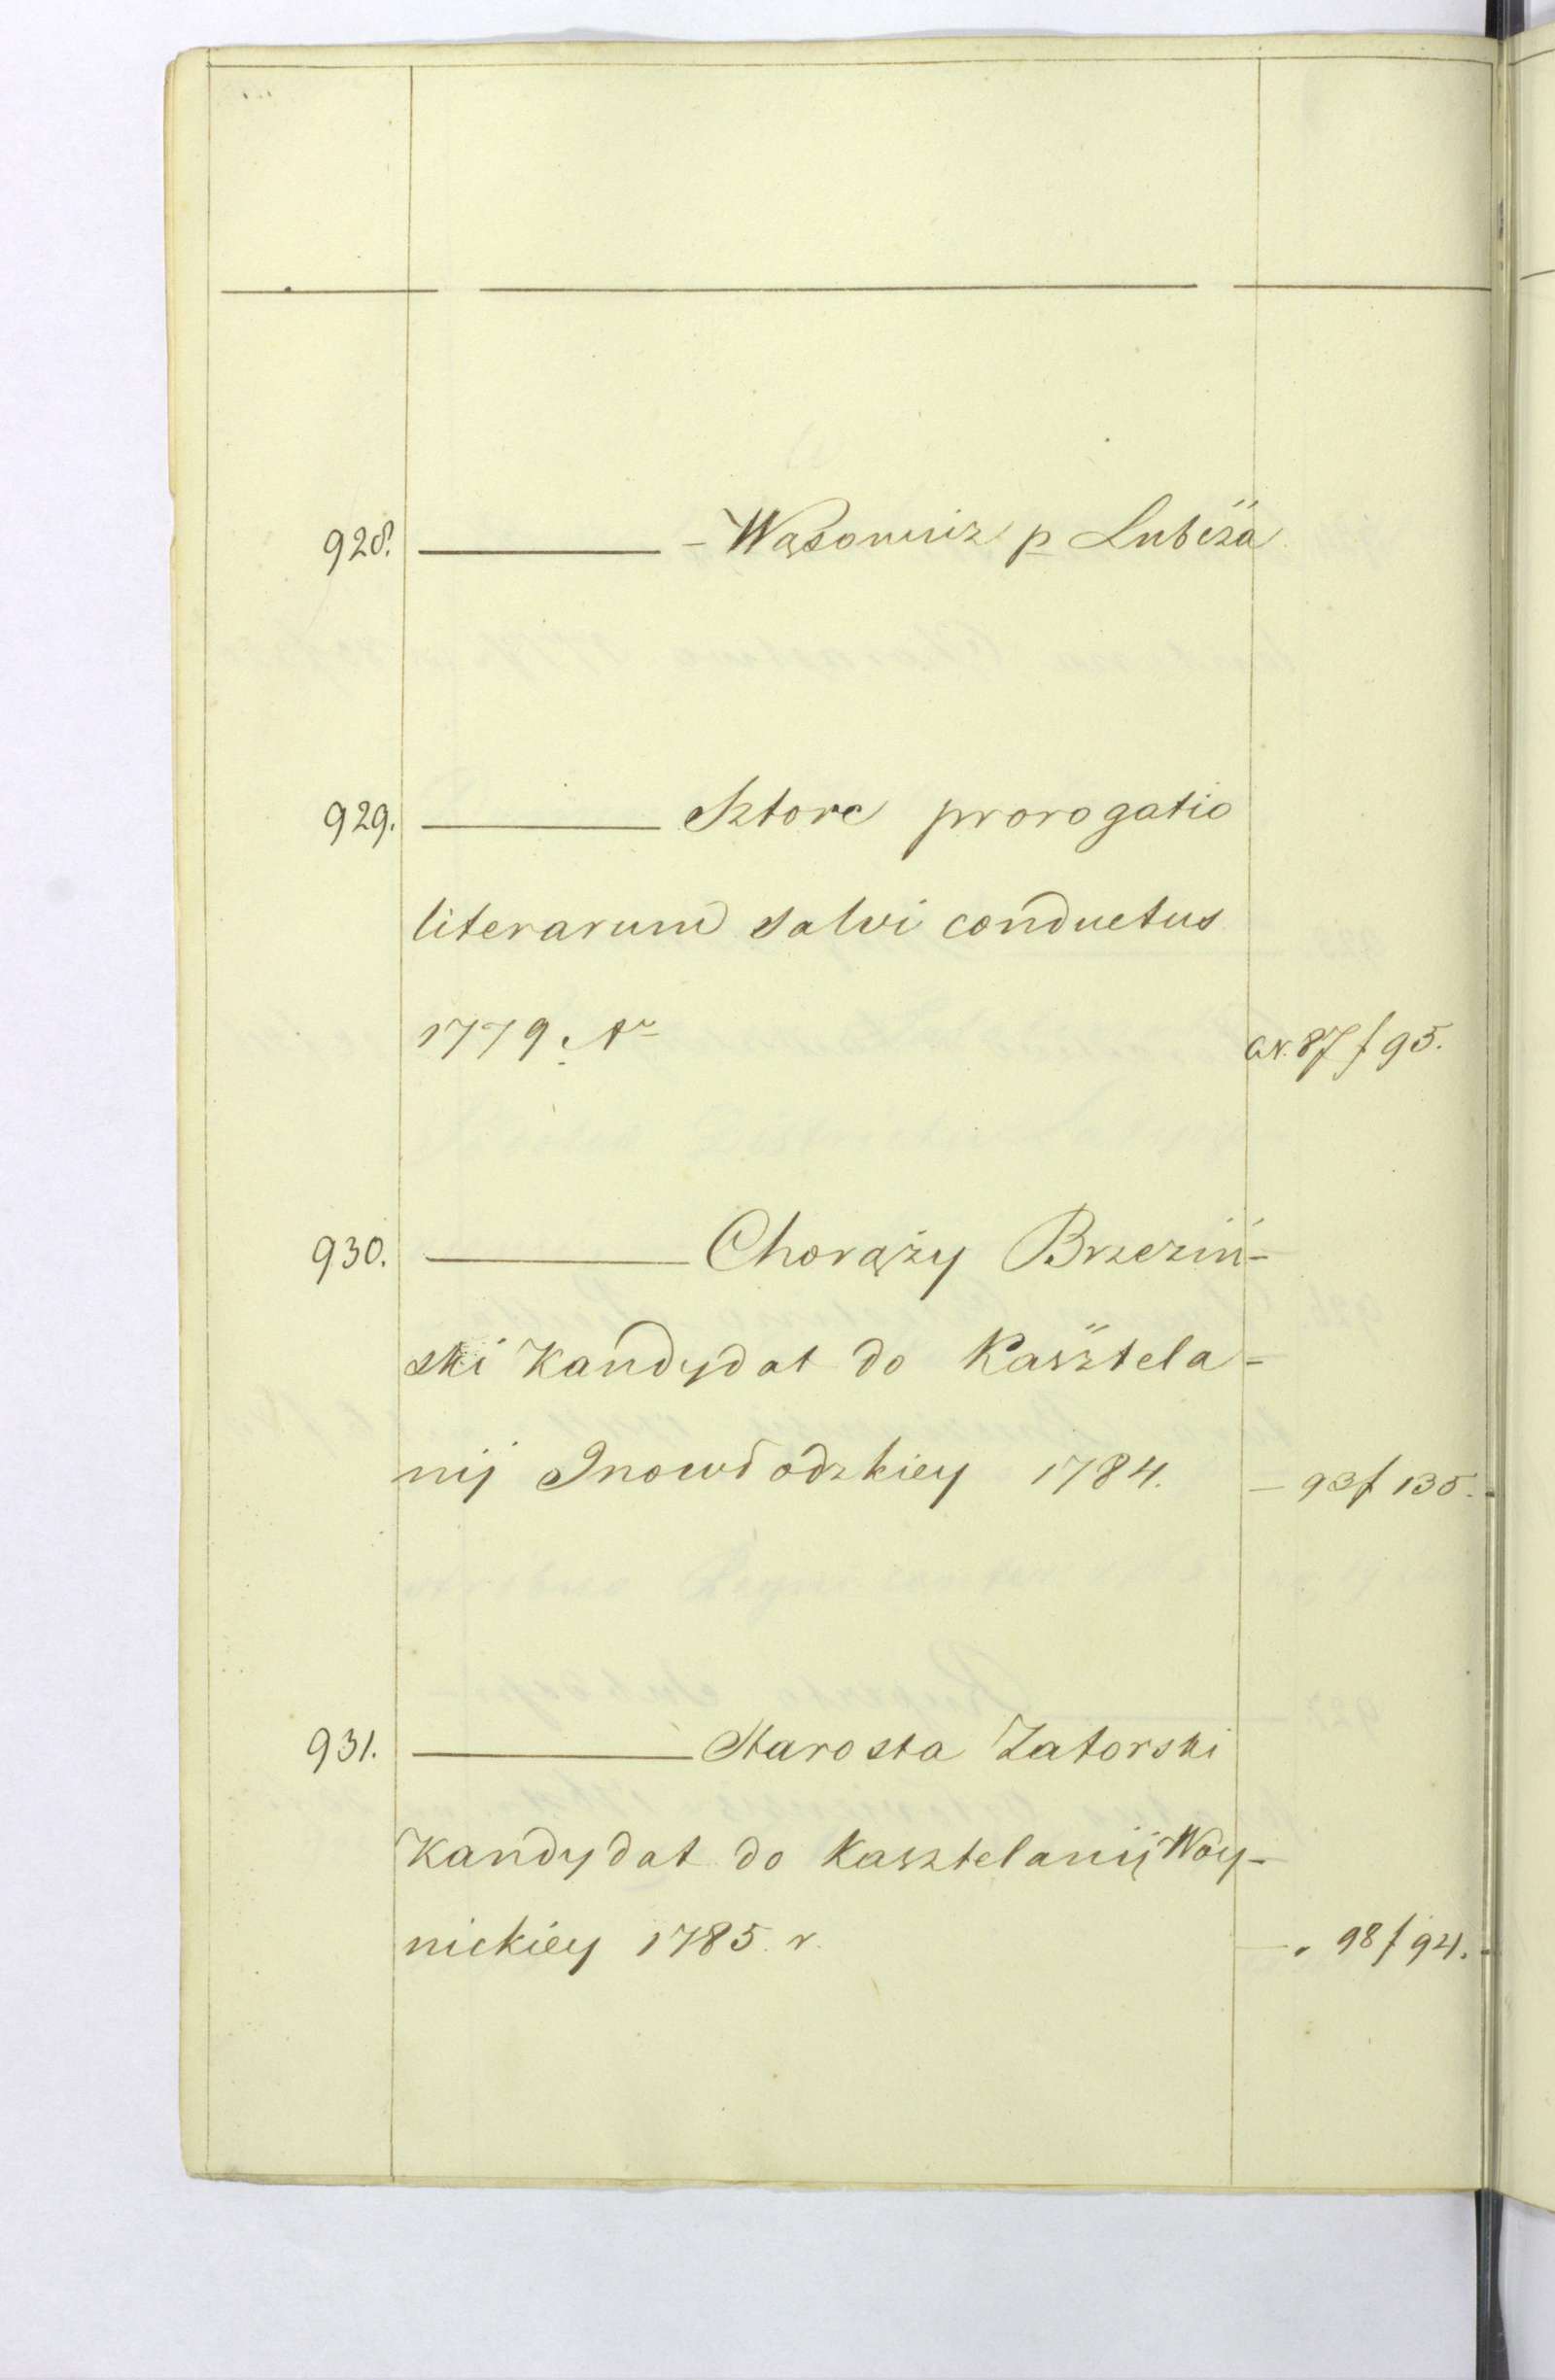 928. — Wąsowicz p Lubiza
929. Sztorc prorogatio
literarum salvi conductus
1779. Ao GN. 87 f 95.
930. Chorąży Brzeziń-
ski Kandydat do Kasztela-
nij Inowłodzkiey 1784. — 93 f 135.
931. Starosta Zatorski
Kandydat do Kasztelanij Woy-
nickiey 1785. r. — 98 f 94.